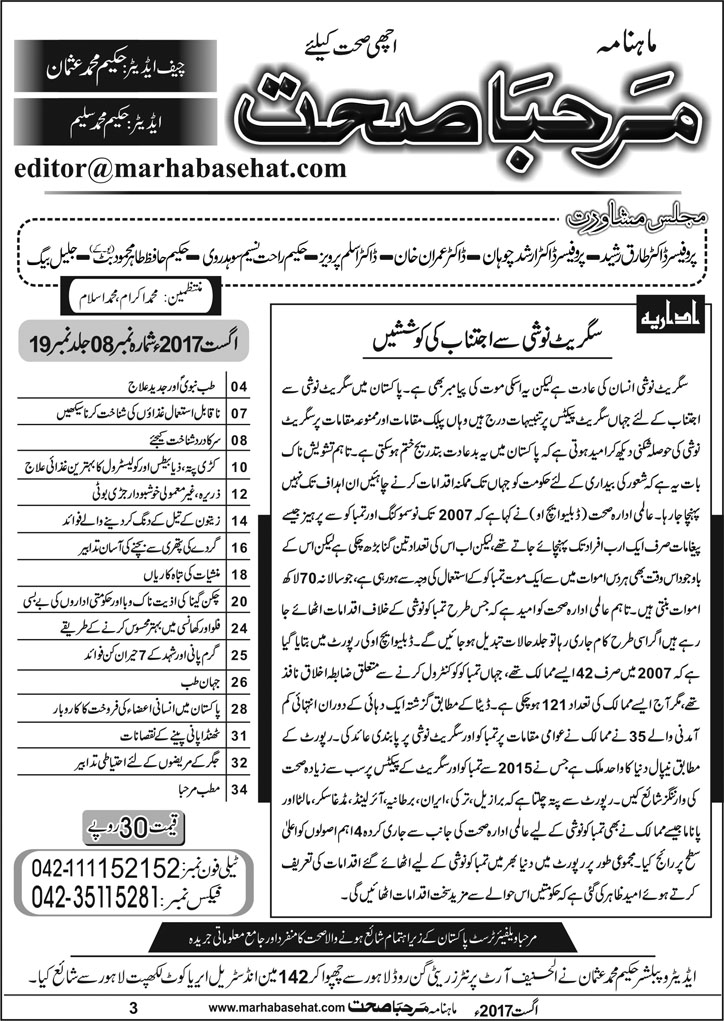 ماہنامہ
اچھی صحت کیلئے
مرحبا صحت
چیف ایڈیٹر: حکیم محمد عثمان
ایڈیٹر: حکیم محمد سلیم
editor@marhabasehat.com
مجلس مشاورت
پروفیسر ڈاکٹر طارق رشید – پروفیسر ڈاکٹر ارشد چوہان – ڈاکٹر عمران خان – ڈاکٹر اسلم پرویز – حکیم راحت نسیم سوہدروی – حکیم حافظ طاہر محمود بٹ (یو کے) – جلیل بیگ
منتظمین: محمد اکرام، محمد اسلام
اداریہ
سگریٹ نوشی سے اجتناب کی کوششیں
سگریٹ نوشی انسان کی عادت ہے لیکن یہ اسکی موت کی پیامبر بھی ہے۔ پاکستان میں سگریٹ نوشی سے
اجتناب کے لئے جہاں سگریٹ پیکٹس پر تنبیہات درج ہیں وہاں پبلک مقامات اور ممنوعہ مقامات پر سگریٹ
نوشی کی حوصلہ شکنی دیکھ کر امید ہوتی ہے کہ پاکستان میں یہ بد عادت بتدریج ختم ہو سکتی ہے۔ تاہم تشویش ناک
بات یہ ہے کہ شعور کی بیداری کے لئے حکومت کو جہاں تک ممکنہ اقدامات کرنے چاہئیں ان اہداف تک نہیں
پہنچا جا رہا۔ عالمی ادارہ صحت (ڈبلیو ایچ او) نے کہا ہے کہ 2007 تک نو سموکنگ اور تمباکو سے پرہیز جیسے
پیغامات صرف ایک ارب افراد تک پہنچائے جاتے تھے، لیکن اب اس کی تعداد تین گنا بڑھ چکی ہے لیکن اس کے
باوجود اس وقت بھی ہر دس اموات میں سے ایک موت تمباکو کے استعمال کی وجہ سے ہو رہی ہے، جو سالانہ 70 لاکھ
اموات بنتی ہیں۔ تاہم عالمی ادارہ صحت کو امید ہے کہ جس طرح تمباکو نوشی کے خلاف اقدامات اٹھائے جا
رہے ہیں اگر اسی طرح کام جاری رہا تو جلد حالات تبدیل ہو جائیں گے۔ ڈبلیو ایچ او کی رپورٹ میں بتایا گیا
ہے کہ 2007 میں صرف 42 ایسے ممالک تھے، جہاں تمباکو کو کنٹرول کرنے سے متعلق ضابطہ اخلاق نافذ
تھے، مگر آج ایسے ممالک کی تعداد 121 ہو چکی ہے۔ ڈیٹا کے مطابق گزشتہ ایک دہائی کے دوران انتہائی کم
آمدنی والے 35 نے ممالک نے عوامی مقامات پر تمباکو اور سگریٹ نوشی پر پابندی عائد کی۔ رپورٹ کے
مطابق نیپال دنیا کا واحد ملک ہے جس نے 2015 سے تمباکو اور سگریٹ کے پیکٹس پر سب سے زیادہ صحت
کی وارننگز شائع کیں۔ رپورٹ سے پتہ چلتا ہے کہ برازیل، ترکی، ایران، برطانیہ، آئرلینڈ، مڈغاسکر، مالٹا اور
پاناما جیسے ممالک نے بھی تمباکو نوشی کے لیے عالمی ادارہ صحت کی جانب سے جاری کردہ 4 اہم اصولوں کو اعلیٰ
سطح پر رائج کیا۔ مجموعی طور پر رپورٹ میں دنیا بھر میں تمباکو نوشی کے لیے اٹھائے گئے اقدامات کی تعریف
کرتے ہوئے امید ظاہر کی گئی ہے کہ حکومتیں اس حوالے سے مزید سخت اقدامات اٹھائیں گی۔
اگست 2017ء شمارہ نمبر 08 جلد نمبر 19
04 طب نبویؐ اور جدید علاج
07 ناقابل استعمال غذاؤں کی شناخت کرنا سیکھیں
08 سر کا درد شناخت کیجئے
10 کڑی پتہ، ذیابیطس اور کولیسٹرول کا بہترین غذائی علاج
12 ذریرہ، غیر معمولی خوشبودار جڑی بوٹی
14 زیتون کے تیل کے دنگ کر دینے والے فوائد
16 گردے کی پتھری سے بچنے کی آسان تدابیر
18 منشیات کی تباہ کاریاں
20 چکن گنیا کی اذیت ناک وبا اور حکومتی اداروں کی بے بسی
24 فلو اور کھانسی میں بہتر محسوس کرنے کے طریقے
25 گرم پانی اور شہد کے 7 حیران کن فوائد
26 جہان طب
28 پاکستان میں انسانی اعضاء کی فروخت کا کاروبار
31 ٹھنڈا پانی پینے کے نقصانات
32 جگر کے مریضوں کے لئے احتیاطی تدابیر
34 مطب مرحبا
قیمت 30 روپے
ٹیلی فون نمبر: 042-111152152
فیکس نمبر: 042-35115281
مرحبا ویلفیئر ٹرسٹ پاکستان کے زیر اہتمام شائع ہونے والا صحت کا منفرد اور جامع معلوماتی جریدہ
ایڈیٹر و پبلشر حکیم محمد عثمان نے الحنیف آرٹ پرنٹرز ریٹی گن روڈ لاہور سے چھپوا کر 142 مین انڈسٹریل ایریا کوٹ لکھپت لاہور سے شائع کیا۔
اگست 2017ء ماہنامہ مرحبا صحت www.marhabasehat.com 3